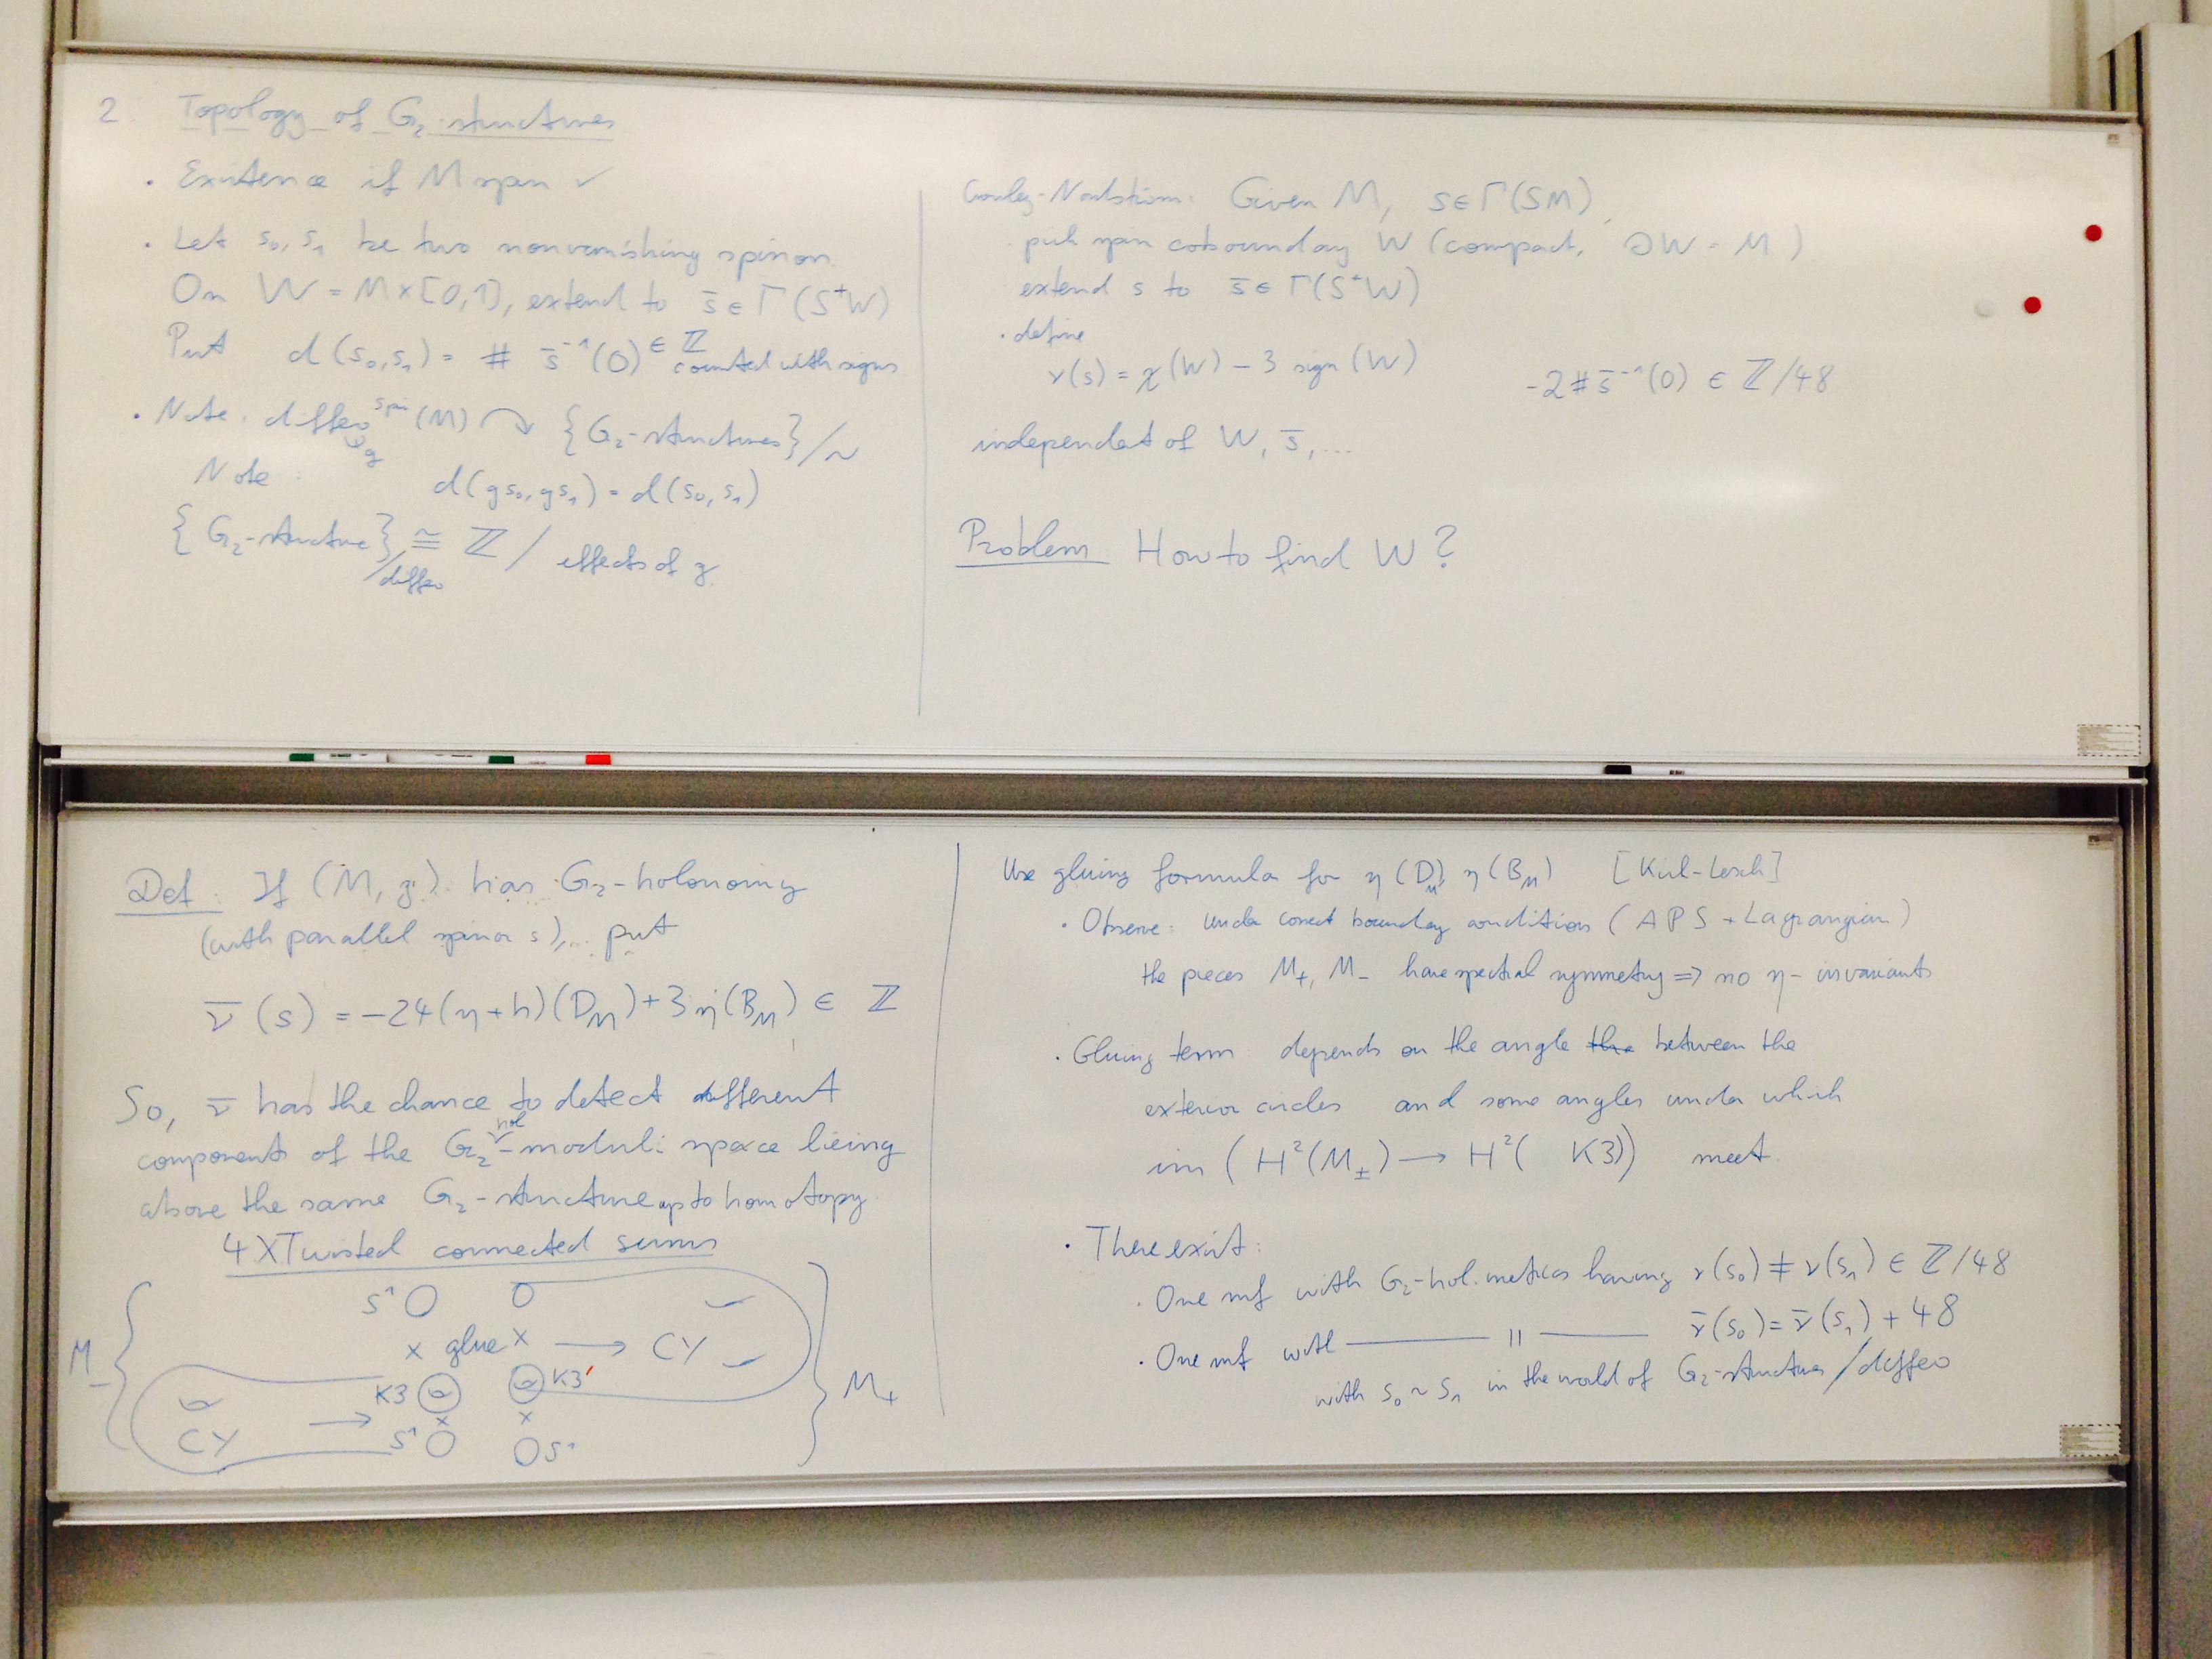 2. Topology of G₂-structures
• Existence if M spin ✓
• Let s₀, s₁ be two nonvanishing spinors.
On W = M×[0,1], extend to s̄ ∈ Γ(S⁺W)
Put d(s₀,s₁) = # s̄⁻¹(0) ∈ ℤ counted with signs
• Note: diffeo^spin(M) ↷ {G₂-structures}/~
g
Note: d(gs₀, gs₁) = d(s₀, s₁)
{G₂-structure}/diffeo ≅ ℤ / effects of g.
Crowley-Nordström: Given M, s ∈ Γ(SM),
pick spin coboundary W (compact, ∂W = M)
extend s to s̄ ∈ Γ(S⁺W)
• define
ν(s) = χ(W) − 3 sign(W) −2 # s̄⁻¹(0) ∈ ℤ/48
independent of W, s̄, ...
Problem: How to find W?
Def: If (M, g) has G₂-holonomy
(with parallel spinor s), ... put
ν̄(s) = −24(η+h)(D_M) + 3η(B_M) ∈ ℤ
So, ν̄ has the chance to detect different
components of the G₂^hol-moduli space lieing
above the same G₂-structure up to homotopy
4 X Twisted connected sums
S¹
× glue × → CY
M₋
K3
K3'
M₊
CY → × ×
S¹
S¹
Use gluing formula for η(D_M), η(B_M) [Kirk-Lesch]
• Observe: Under correct boundary conditions (APS + Lagrangian)
the pieces M₊, M₋ have spectral symmetry ⇒ no η-invariants
• Gluing term depends on the angle the between the
exterior circles and some angles under which
im (H²(M±) → H²( K3)) meet
• There exist:
• One mf with G₂-hol. metrics having ν(s₀) ≠ ν(s₁) ∈ ℤ/48
• One mf with —— " —— ν̄(s₀) = ν̄(s₁) + 48
with s₀ ~ s₁ in the world of G₂-structures/diffeo